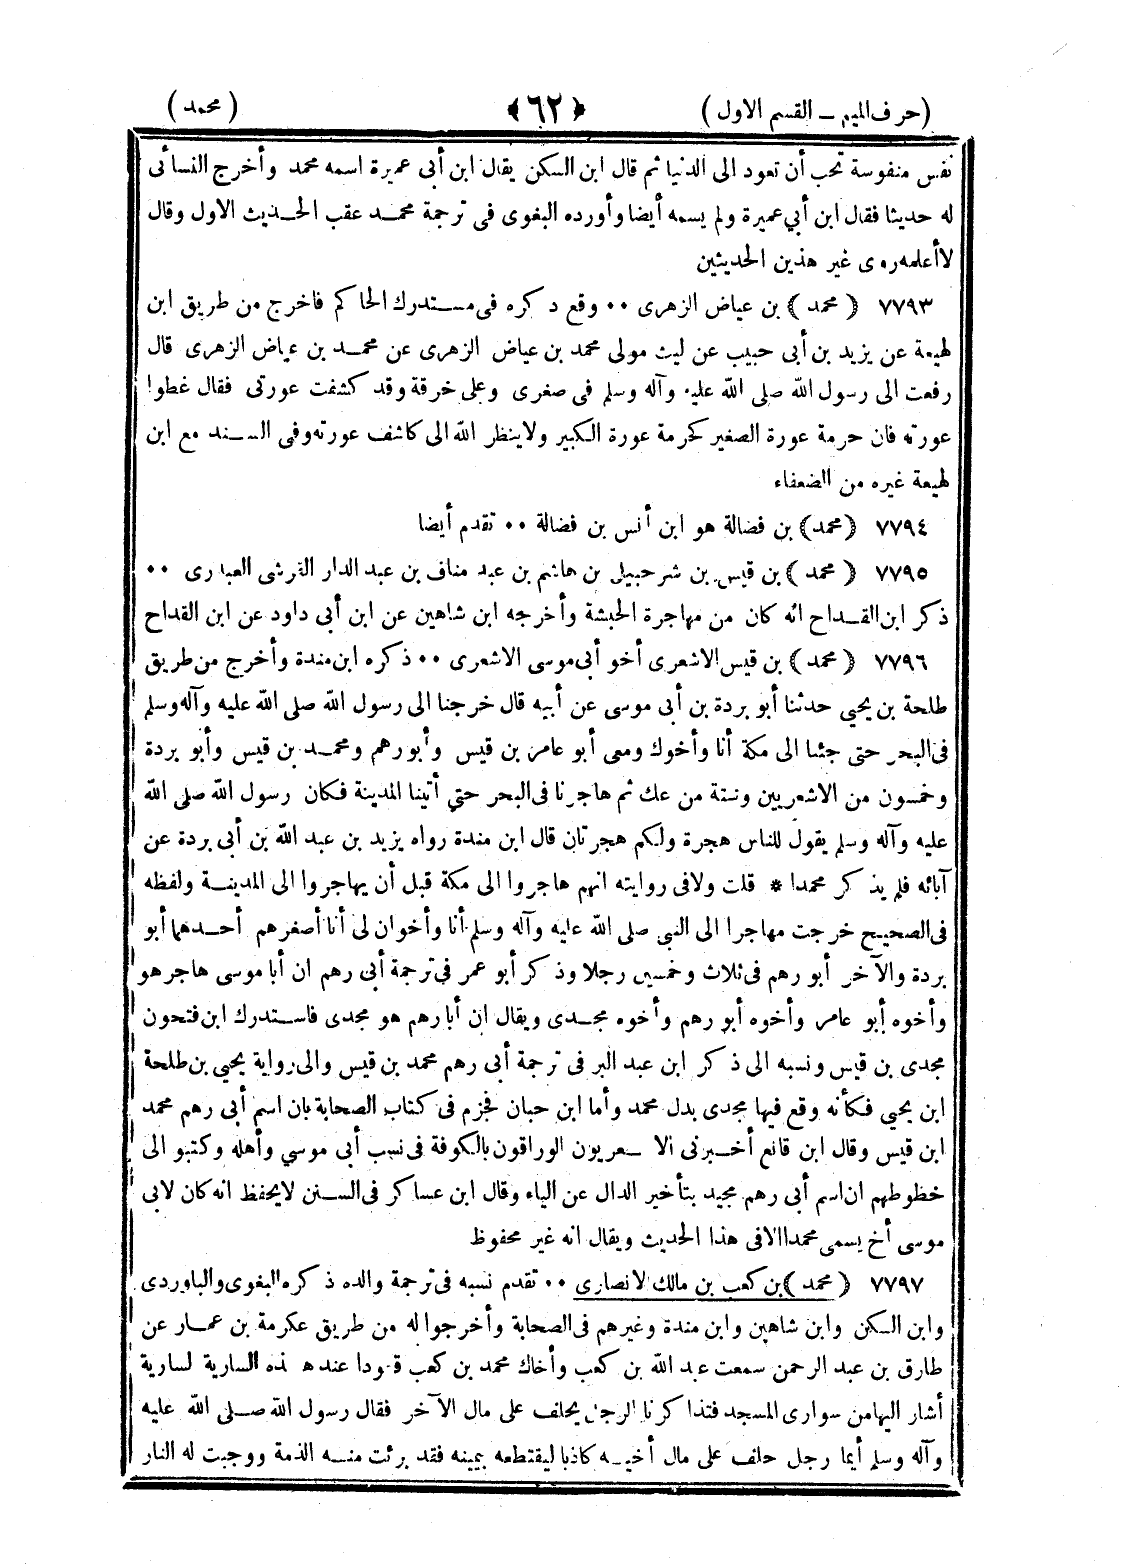 (حرف الميم – القسم الاول) ﴿٦٢﴾ (محمد)
نفس منفوسة تحب أن تعود الى الدنيا ثم قال ابن السكن يقال ابن أبى عميرة اسمه محمد وأخرج النسائى
له حديثا فقال ابن أبي عميرة ولم يسمه أيضا وأورده البغوى فى ترجمة محمد عقب الحديث الاول وقال
لا أعلمه روى غير هذين الحديثين
٧٧٩٣ ﴿ محمد ﴾ بن عياض الزهرى ٠٠ وقع ذكره فى مستدرك الحاكم فاخرج من طريق ابن
لهيعة عن يزيد بن أبى حبيب عن ليث مولى محمد بن عياض الزهرى عن محمد بن عياض الزهرى قال
رفعت الى رسول الله صلى الله عليه وآله وسلم فى صغرى وعلى خرقة وقد كشفت عورتى فقال غطوا
عورته فان حرمة عورة الصغير كحرمة عورة الكبير ولاينظر الله الى كاشف عورته وفى السند مع ابن
لهيعة غيره من الضعفاء
٧٧٩٤ ﴿محمد﴾ بن فضالة هو ابن أنس بن فضالة ٠٠ تقدم أيضا
٧٧٩٥ ﴿ محمد ﴾ بن قيس بن شرحبيل بن هاشم بن عبد مناف بن عبد الدار القرشى العبدرى ٠٠
ذكر ابن القداح انه كان من مهاجرة الحبشة وأخرجه ابن شاهين عن ابن أبى داود عن ابن القداح
٧٧٩٦ ﴿ محمد ﴾ بن قيس الاشعرى أخو أبى موسى الاشعرى ٠٠ ذكره ابن مندة وأخرج من طريق
طلحة بن يحيى حدثنا أبو بردة بن أبى موسى عن أبيه قال خرجنا الى رسول الله صلى الله عليه وآله وسلم
فى البحر حتى جئنا الى مكة أنا وأخوك ومعى أبو عامر بن قيس وأبو رهم ومحمد بن قيس وأبو بردة
وخمسون من الاشعريين وستة من عك ثم هاجرنا فى البحر حتي أتينا المدينة فكان رسول الله صلى الله
عليه وآله وسلم يقول للناس هجرة ولكم هجرتان قال ابن مندة رواه يزيد بن عبد الله بن أبى بردة عن
آبائه فلم يذكر محمدا * قلت ولافى روايته انهم هاجروا الى مكة قبل أن يهاجروا الى المدينة ولفظه
فى الصحيح خرجت مهاجرا الى النبى صلى الله عليه وآله وسلم أنا وأخوان لى أنا أصغرهم أحدهما أبو
بردة والآخر أبو رهم فى ثلاث وخمسين رجلا وذكر أبو عمر فى ترجمة أبى رهم ان أبا موسى هاجر هو
وأخوه أبو عامر وأخوه أبو رهم وأخوه مجدى ويقال ان أبا رهم هو مجدى فاستدرك ابن فتحون
مجدى بن قيس ونسبه الى ذكر ابن عبد البر فى ترجمة أبى رهم محمد بن قيس والى رواية يحيي بن طلحة
ابن يحيي فكأنه وقع فيها مجدى بدل محمد وأما ابن حبان فجزم فى كتاب الصحابة بان اسم أبى رهم محمد
ابن قيس وقال ابن قانع أخبرنى الاشعريون الوراقون بالكوفة فى نسب أبى موسي وأهله وكتبو الى
خظوطهم ان اسم أبى رهم مجيد بتأخير الدال عن الياء وقال ابن عساكر فى السنن لايحفظ انه كان لابى
موسى أخ يسمى محمدا الا فى هذا الحديث ويقال انه غير محفوظ
٧٧٩٧ ﴿ محمد ﴾ بن كعب بن مالك الانصارى ٠٠ تقدم نسبه فى ترجمة والده ذكره البغوى والباوردى
وابن السكن وابن شاهين وابن مندة وغيرهم فى الصحابة وأخرجوا له من طريق عكرمة بن عمار عن
طارق بن عبد الرحمن سمعت عبد الله بن كعب وأخاك محمد بن كعب قعودا عند هذه السارية لسارية
أشار اليها من سوارى المسجد فتذاكرنا الرجل يحلف على مال الآخر فقال رسول الله صلى الله عليه
وآله وسلم أيما رجل حلف على مال أخيه كاذبا ليقتطعه بيمينه فقد برئت منه الذمة ووجبت له النار